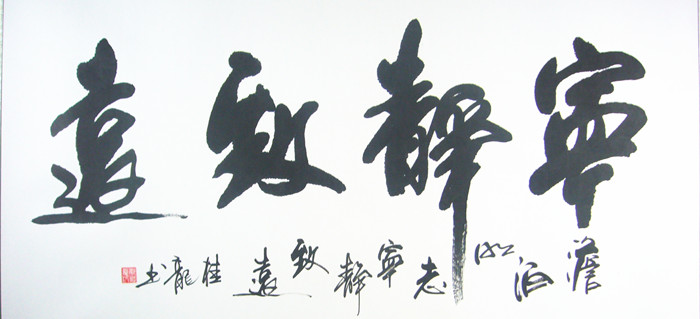 寧靜致遠
澹泊明志寧靜致遠桂龍書